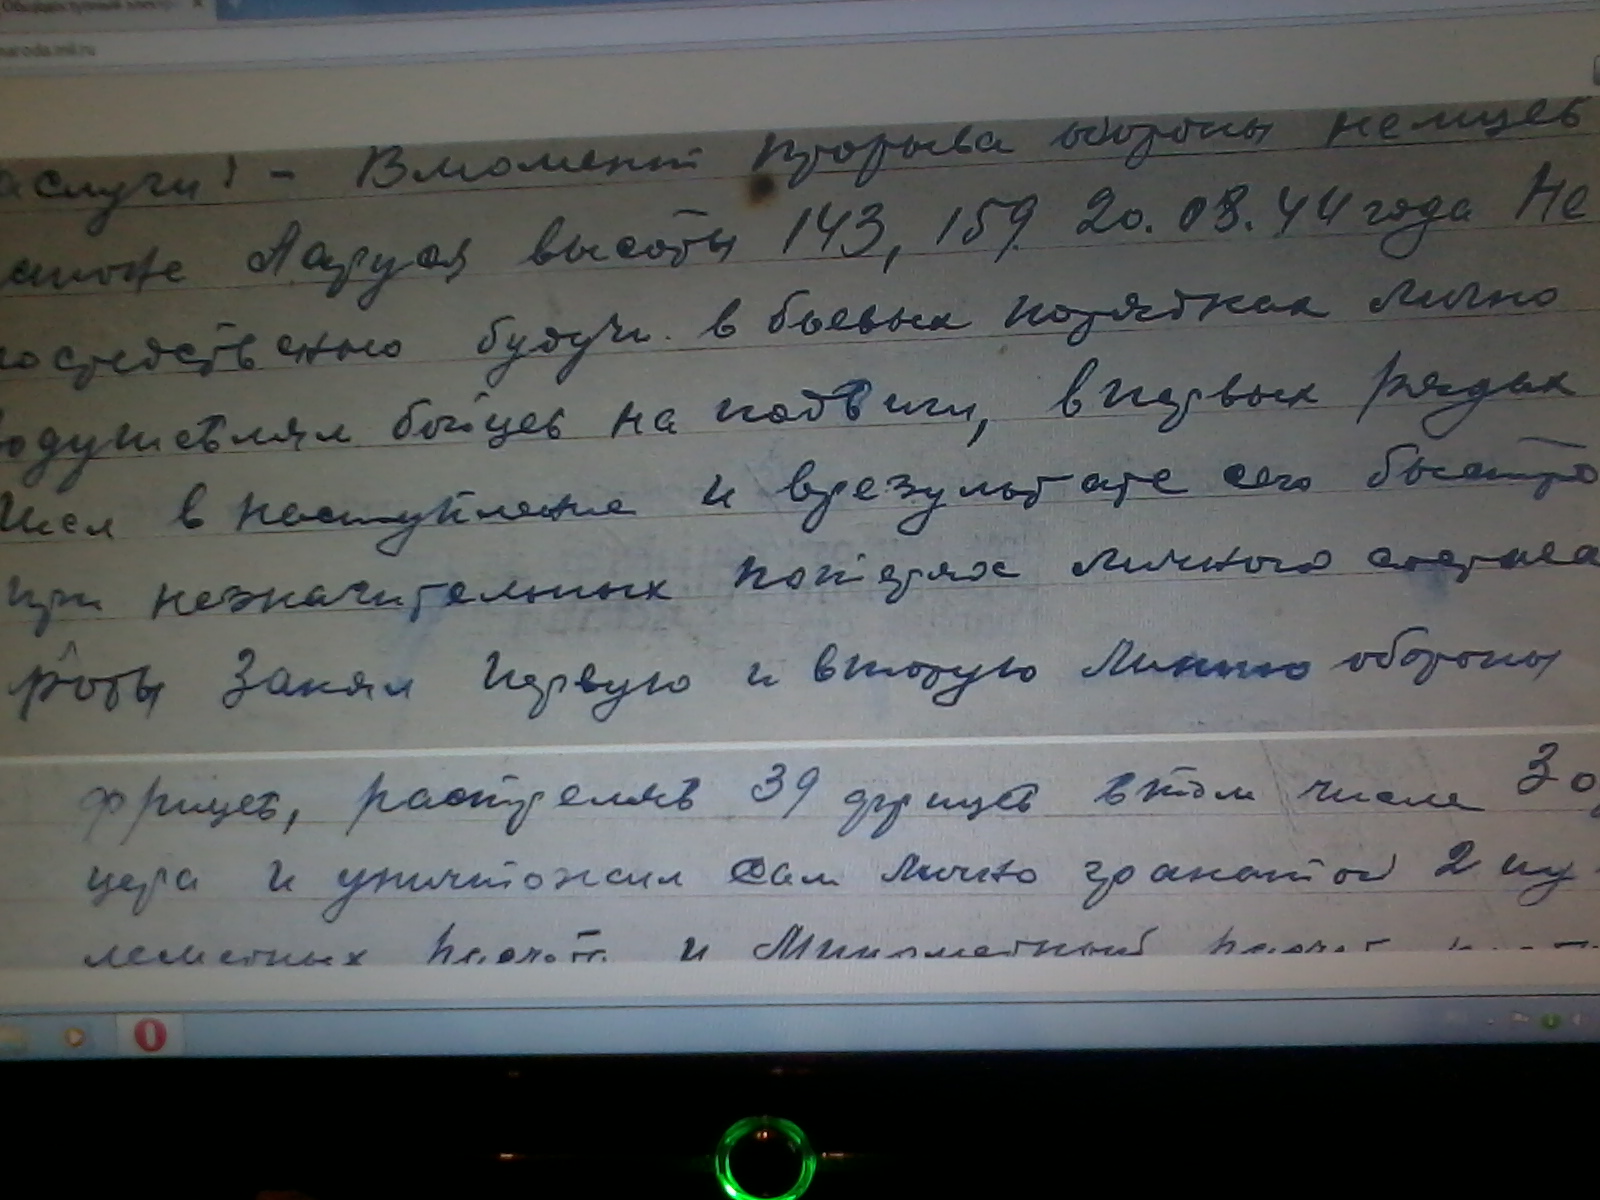 Общедоступный электр
naroda.mil.ru
аслуги! - В момент прорыва обороны немцев
высоты 143, 159 20.08.44 года Не
посредственно будучи в боевых порядках лично
одушевлял бойцев на подвиги, в первых рядах
Шел в наступление и врезультате сего быстро
при незначительных потерях личного состава
роты Занял первую и вторую Линию обороны
фрицев, растреляв 39 фрицев втом числе 3 оф
цера и уничтожил сам лично гранатой 2 пу
леметных расчета и Минометный расчет